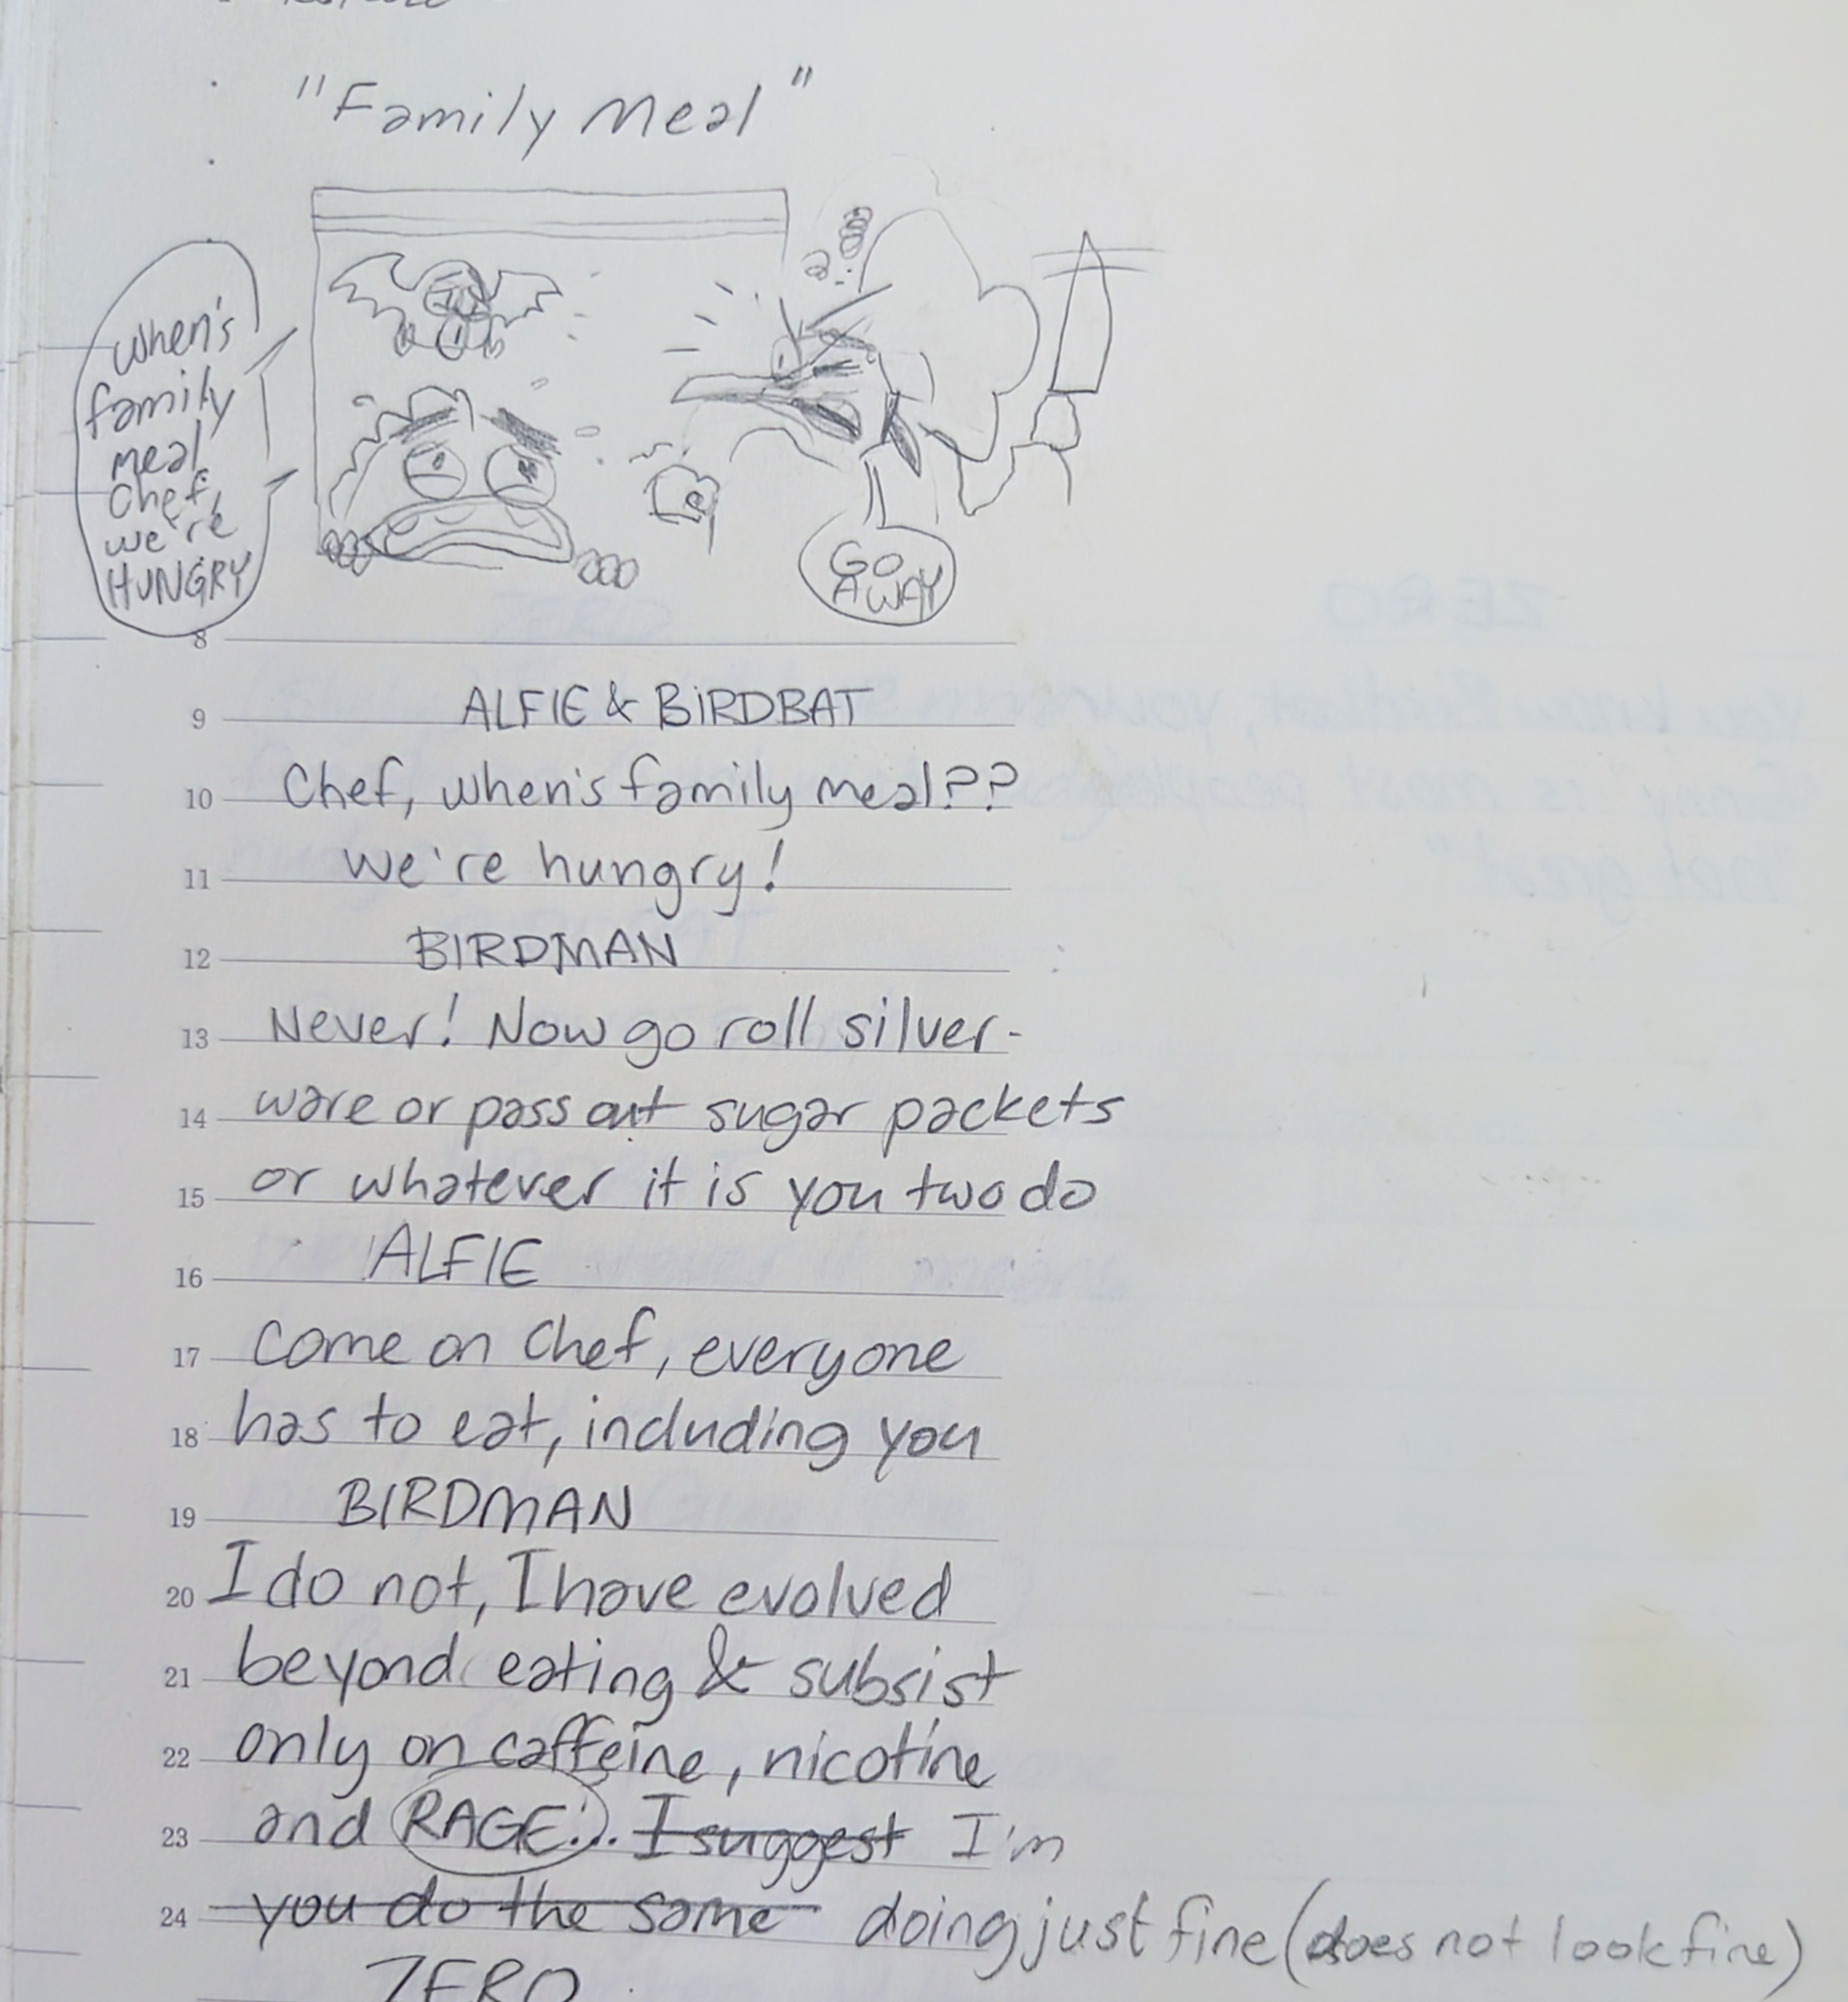 "Family Meal"
When's
family
meal
Chef,
we're
HUNGRY
GO
AWAY
8
9 ALFIE & BIRDBAT
10 Chef, when's family meal??
11 we're hungry!
12 BIRDMAN
13 Never! Now go roll silver-
14 ware or pass out sugar packets
15 or whatever it is you two do
16 ALFIE
17 Come on Chef, everyone
18 has to eat, including you
19 BIRDMAN
20 I do not, I have evolved
21 beyond eating & subsist
22 only on caffeine, nicotine
23 and RAGE... I suggest I'm
24 you do the same doing just fine (does not look fine)
ZERO